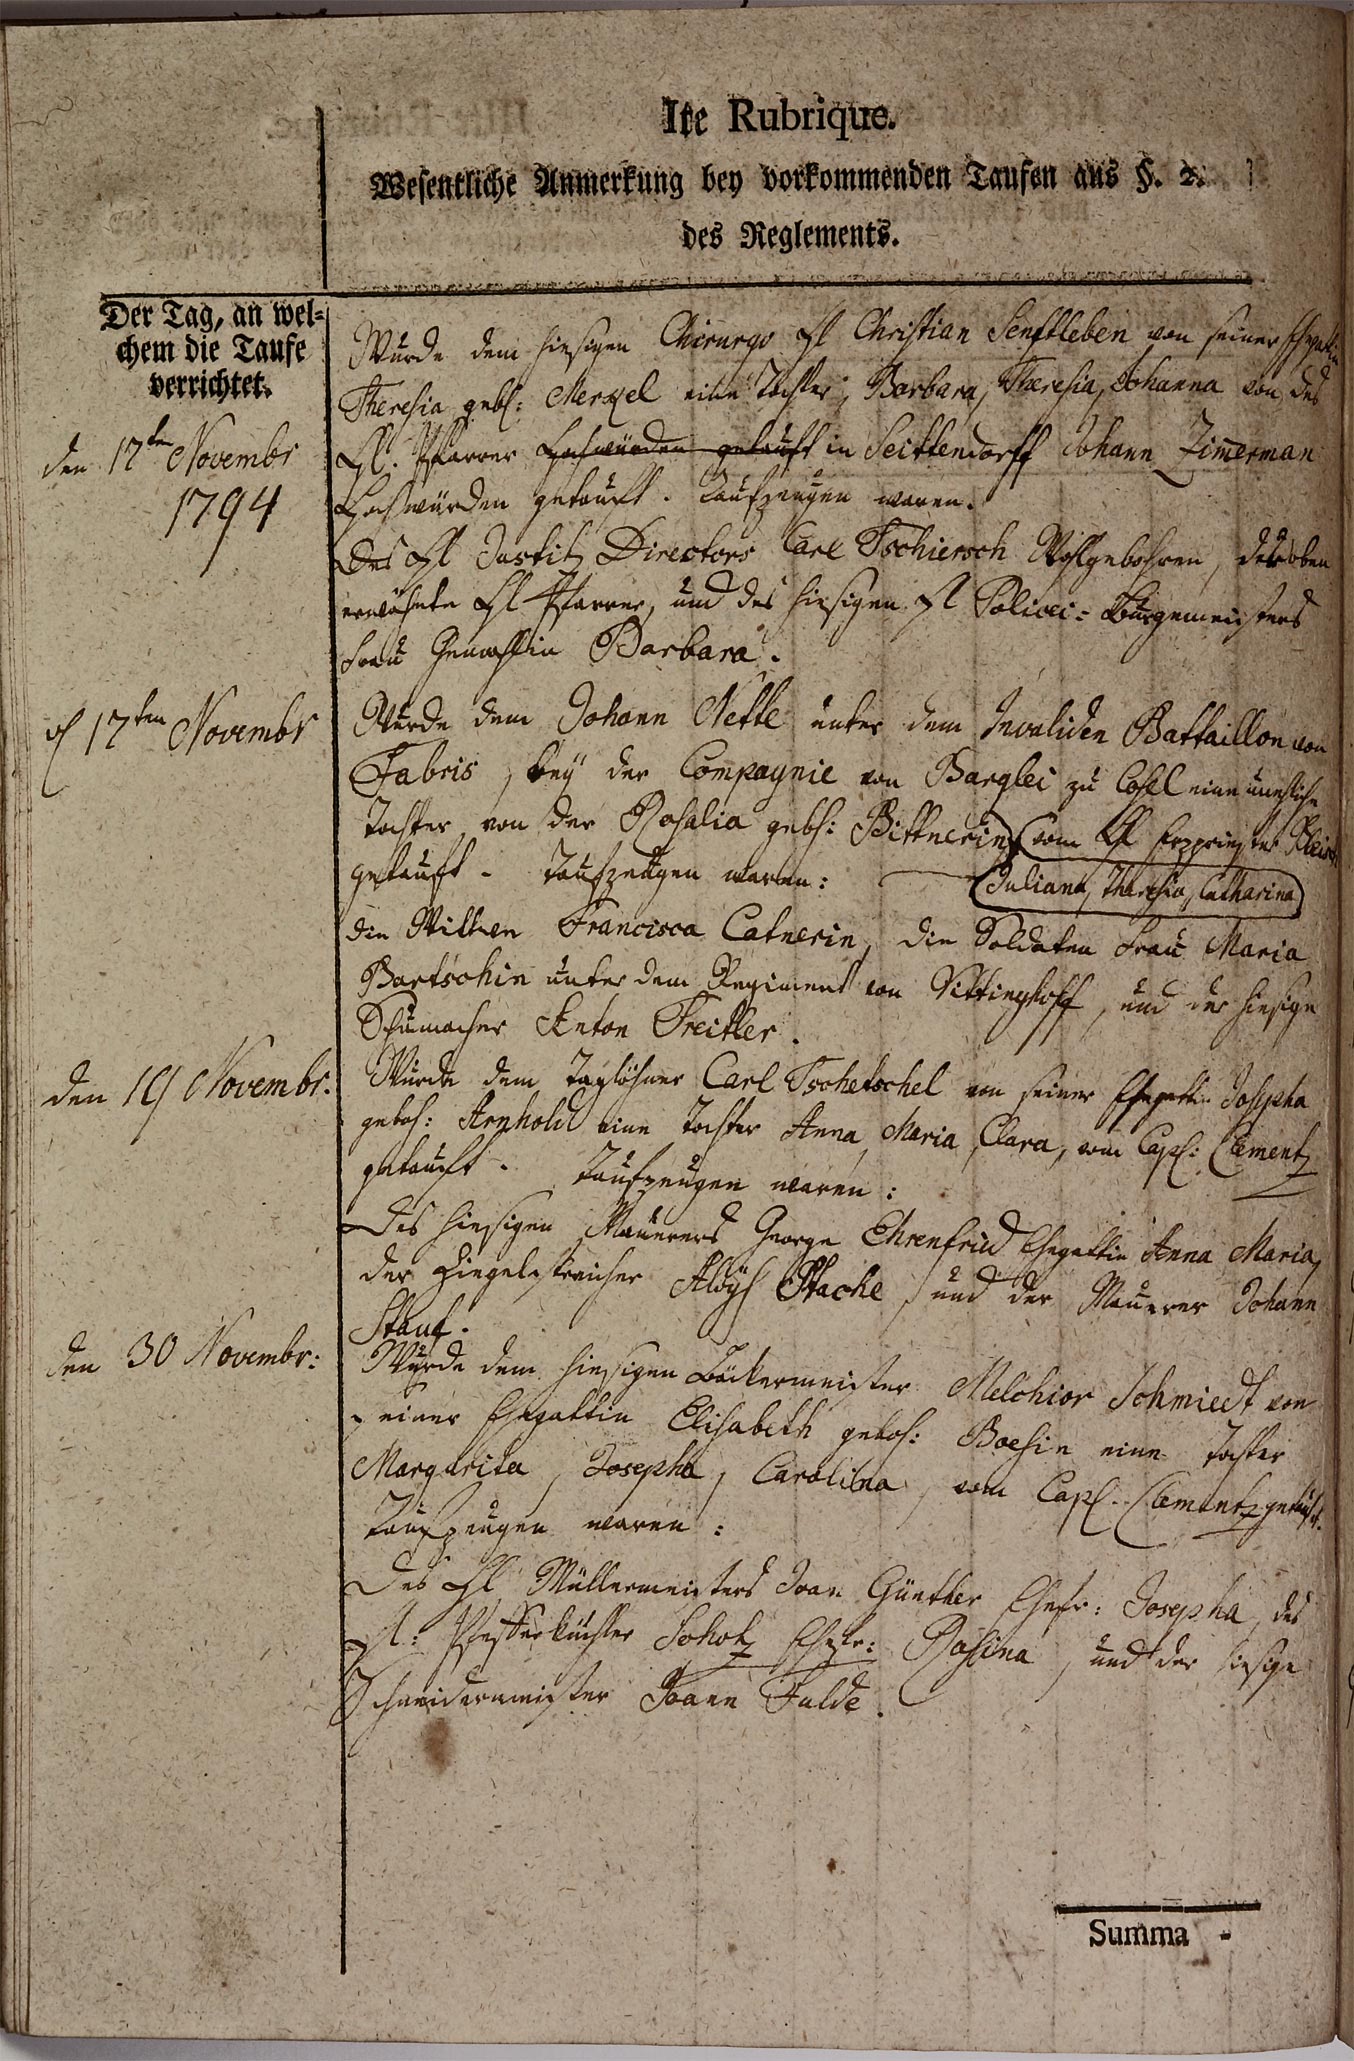 Ite Rubrique.
Wesentliche Anmerkung bey vorkommenden Taufen aus §. 2.
des Reglements.
Der Tag, an wel-
chem die Taufe
verrichtet.
den 17ten Novembr
1794
Wurde dem hiesigen Chirurgo H Christian Senftleben von seiner Ehegattin
Theresia geb: Merkel eine Tochter, Barbara, Theresia, Johanna von des
H. Pfarrer Hochwürden getauft in Seittendorff Johann Zimerman
Hochwürden getauft. Taufzeugen waren.
Des H Justitz Directors Carl Tschiersch Wohlgebohren, der oben
erwähnte H Pfarrer, und des hiesigen H Policei-Burgemeisters
Frau Gemahlin Barbara.
d 17ten Novembr
Wurde dem Johann Nette unter dem Invaliden Battaillon von
Fabris, bey der Compagnie von Barglei zu Cosel eine unehliche
Tochter von der Rosalia gebh: Bittnerin vom H Erzpriester
getauft. Taufzeugen waren: Juliana, Theresia, Catharina
die Wittwen Francisca Catnerin, die Soldaten Frau Maria
Bartschin unter dem Regiment von Vittinghoff, und der hiesige
Schumacher Anton Treitler.
den 19 Novembr.
Wurde dem Taglöhner Carl Tschetschel von seiner Ehegattin Josepha
geboh: Arnhold eine Tochter Anna, Maria, Clara, vom Capl: Clementz
getauft. Taufzeugen waren:
Des hiesigen Mauerers George Ehrenfried Ehegattin Anna Maria,
der Ziegelstreicher Aloys Stache, und der Mauerer Johann
Stanf.
den 30 Novembr:
Wurde dem hiesigen Bäckermeister Melchior Schmiedt von
seiner Ehegattin Elisabeth geboh: Boesin eine Tochter
Margarita, Josepha, Carolina, vom Capl. Clementz getauft.
Taufzeugen waren:
Des H Müllermeisters Joan Günther Ehefr: Josepha, des
H: Pfefferküchler Scholz Ehefr: Rosina, und der hiesige
Schneidermeister Joann Fulde.
Summa -